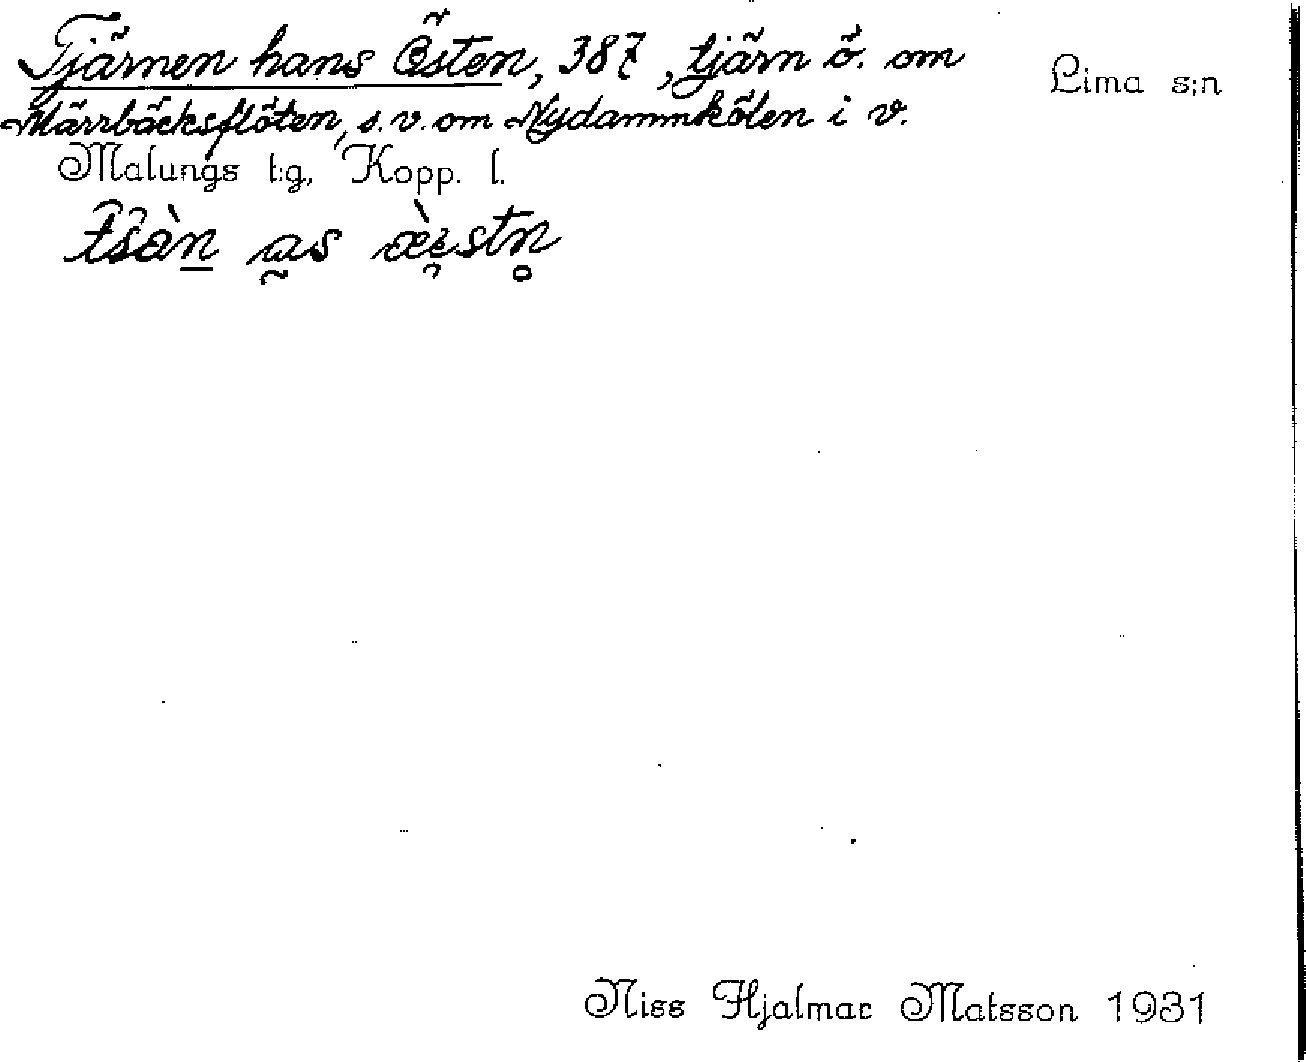 Tjärnen hans Östen, 387, tjärn ö. om
Lima s:n
Märrbäcksflöten, s.v. om Nydammkölen i v.
Malungs t:g, Kopp. l.
Niss Hjalmar Matsson 1931